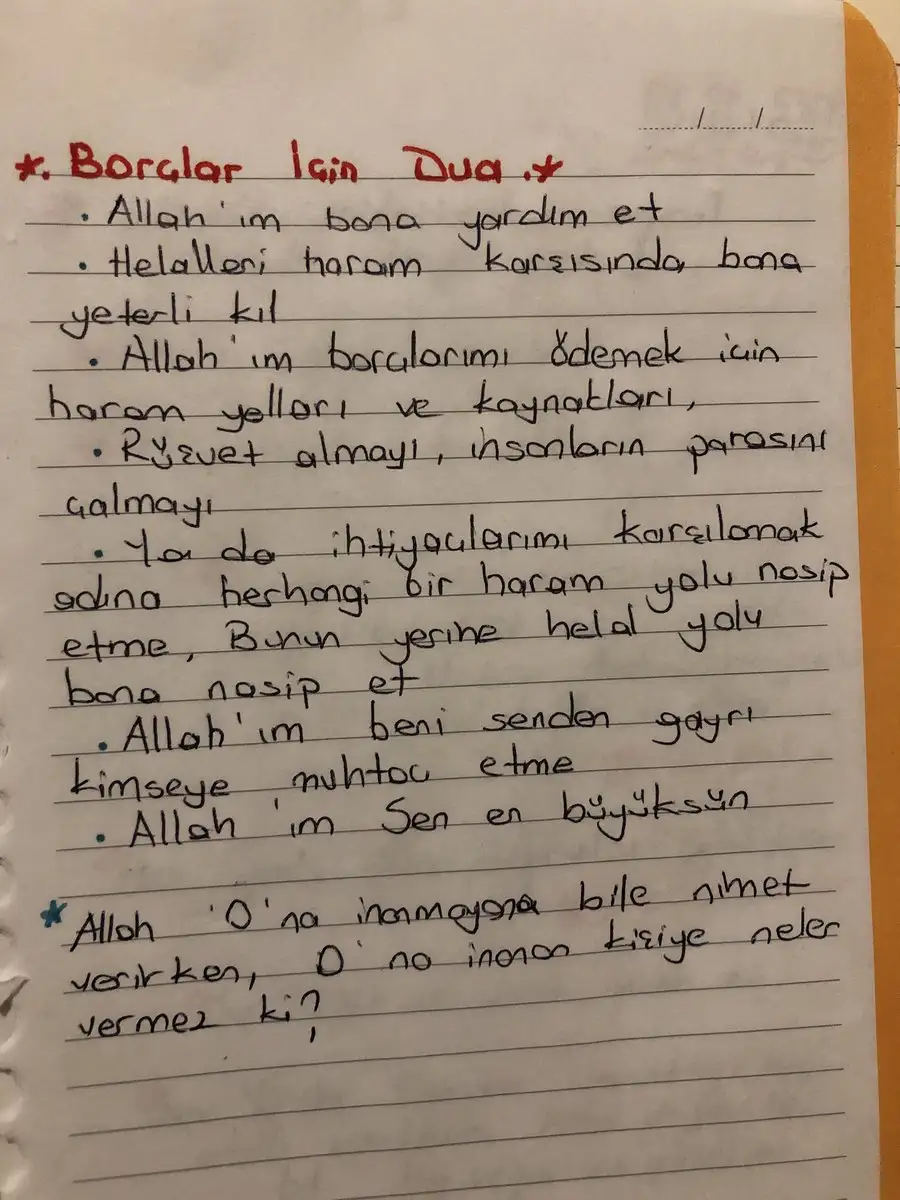 *. Borçlar İçin Dua .*
• Allah'ım bana yardım et
• Helalleri haram karşısında bana
yeterli kıl
• Allah'ım borçlarımı ödemek için
haram yolları ve kaynakları,
• Rüşvet almayı, insanların parasını
çalmayı
• Ya da ihtiyaçlarımı karşılamak
adına herhangi bir haram yolu nasip
etme, Bunun yerine helal yolu
bana nasip et
• Allah'ım beni senden gayrı
kimseye muhtaç etme
• Allah'ım Sen en büyüksün
* Allah 'O'na inanmayana bile nimet
verirken, O'na inanan kişiye neler
vermez ki?